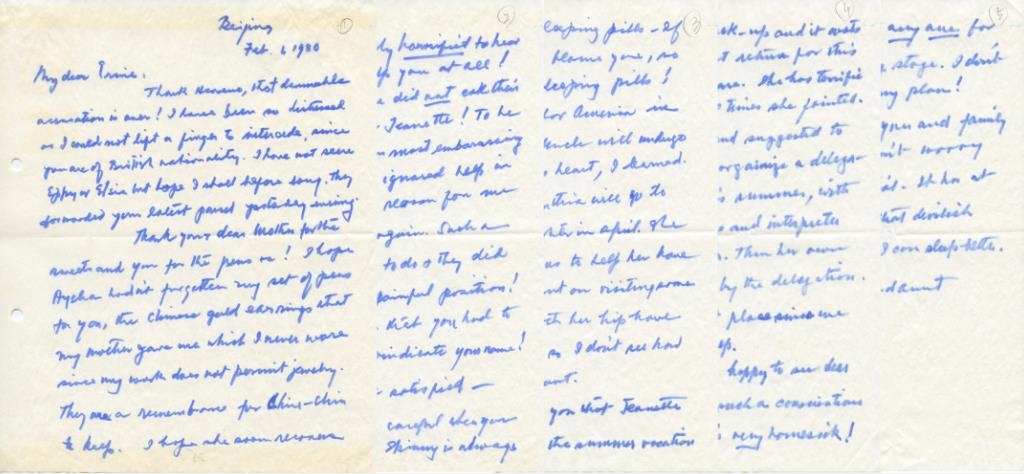 Beijing
Feb. 6, 1980
①
My dear Ernie,
Thank Heavens, that damnable
accusation is over! I have been so distressed
as I could not lift a finger to intercede, since
you are of British nationality. I have not seen
Eppy or Elsie but hope I shall before long. They
forwarded your latest parcel yesterday evening.
Thank your dear Mother for the
sweets and you for the pens etc! I hope
Aycha hadn't forgotten my set of pens
for you, the Chinese gold earrings that
my mother gave me which I never wore
since my work does not permit jewelry.
They are a remembrance for Chin-Chin
to keep. I hope she soon recovers
②
ly horrified to hear
you at all!
a did not eat their
Jeanette! To be
most embarrassing
ignored help in
reason for me
again. Such a
to do & they did
painful position!
that you had to
vindicate your name!
satisfied —
careful when your
Skinny is always
③
leeping pills - If
blame you, so
leeping pills!
for America in
uncle will undergo
heart, I learned.
will go to
in April. She
us to help her have
nt on visiting some
th her hip have
so I don't see how
ant.
you that Jeanette
the summer vacation
④
ck-up and it costs
t return for this
are. She has terrific
times she fainted.
nd suggested to
organize a delega-
summer, with
and interpreter
. Then her own
by the delegation.
place since we
ep.
happy to see dear
such a conscientious
very homesick!
⑤
any one for
stage. I don't
my plan!
you and family
n't worry
it. It has at
that devilish
I can sleep better.
daunt